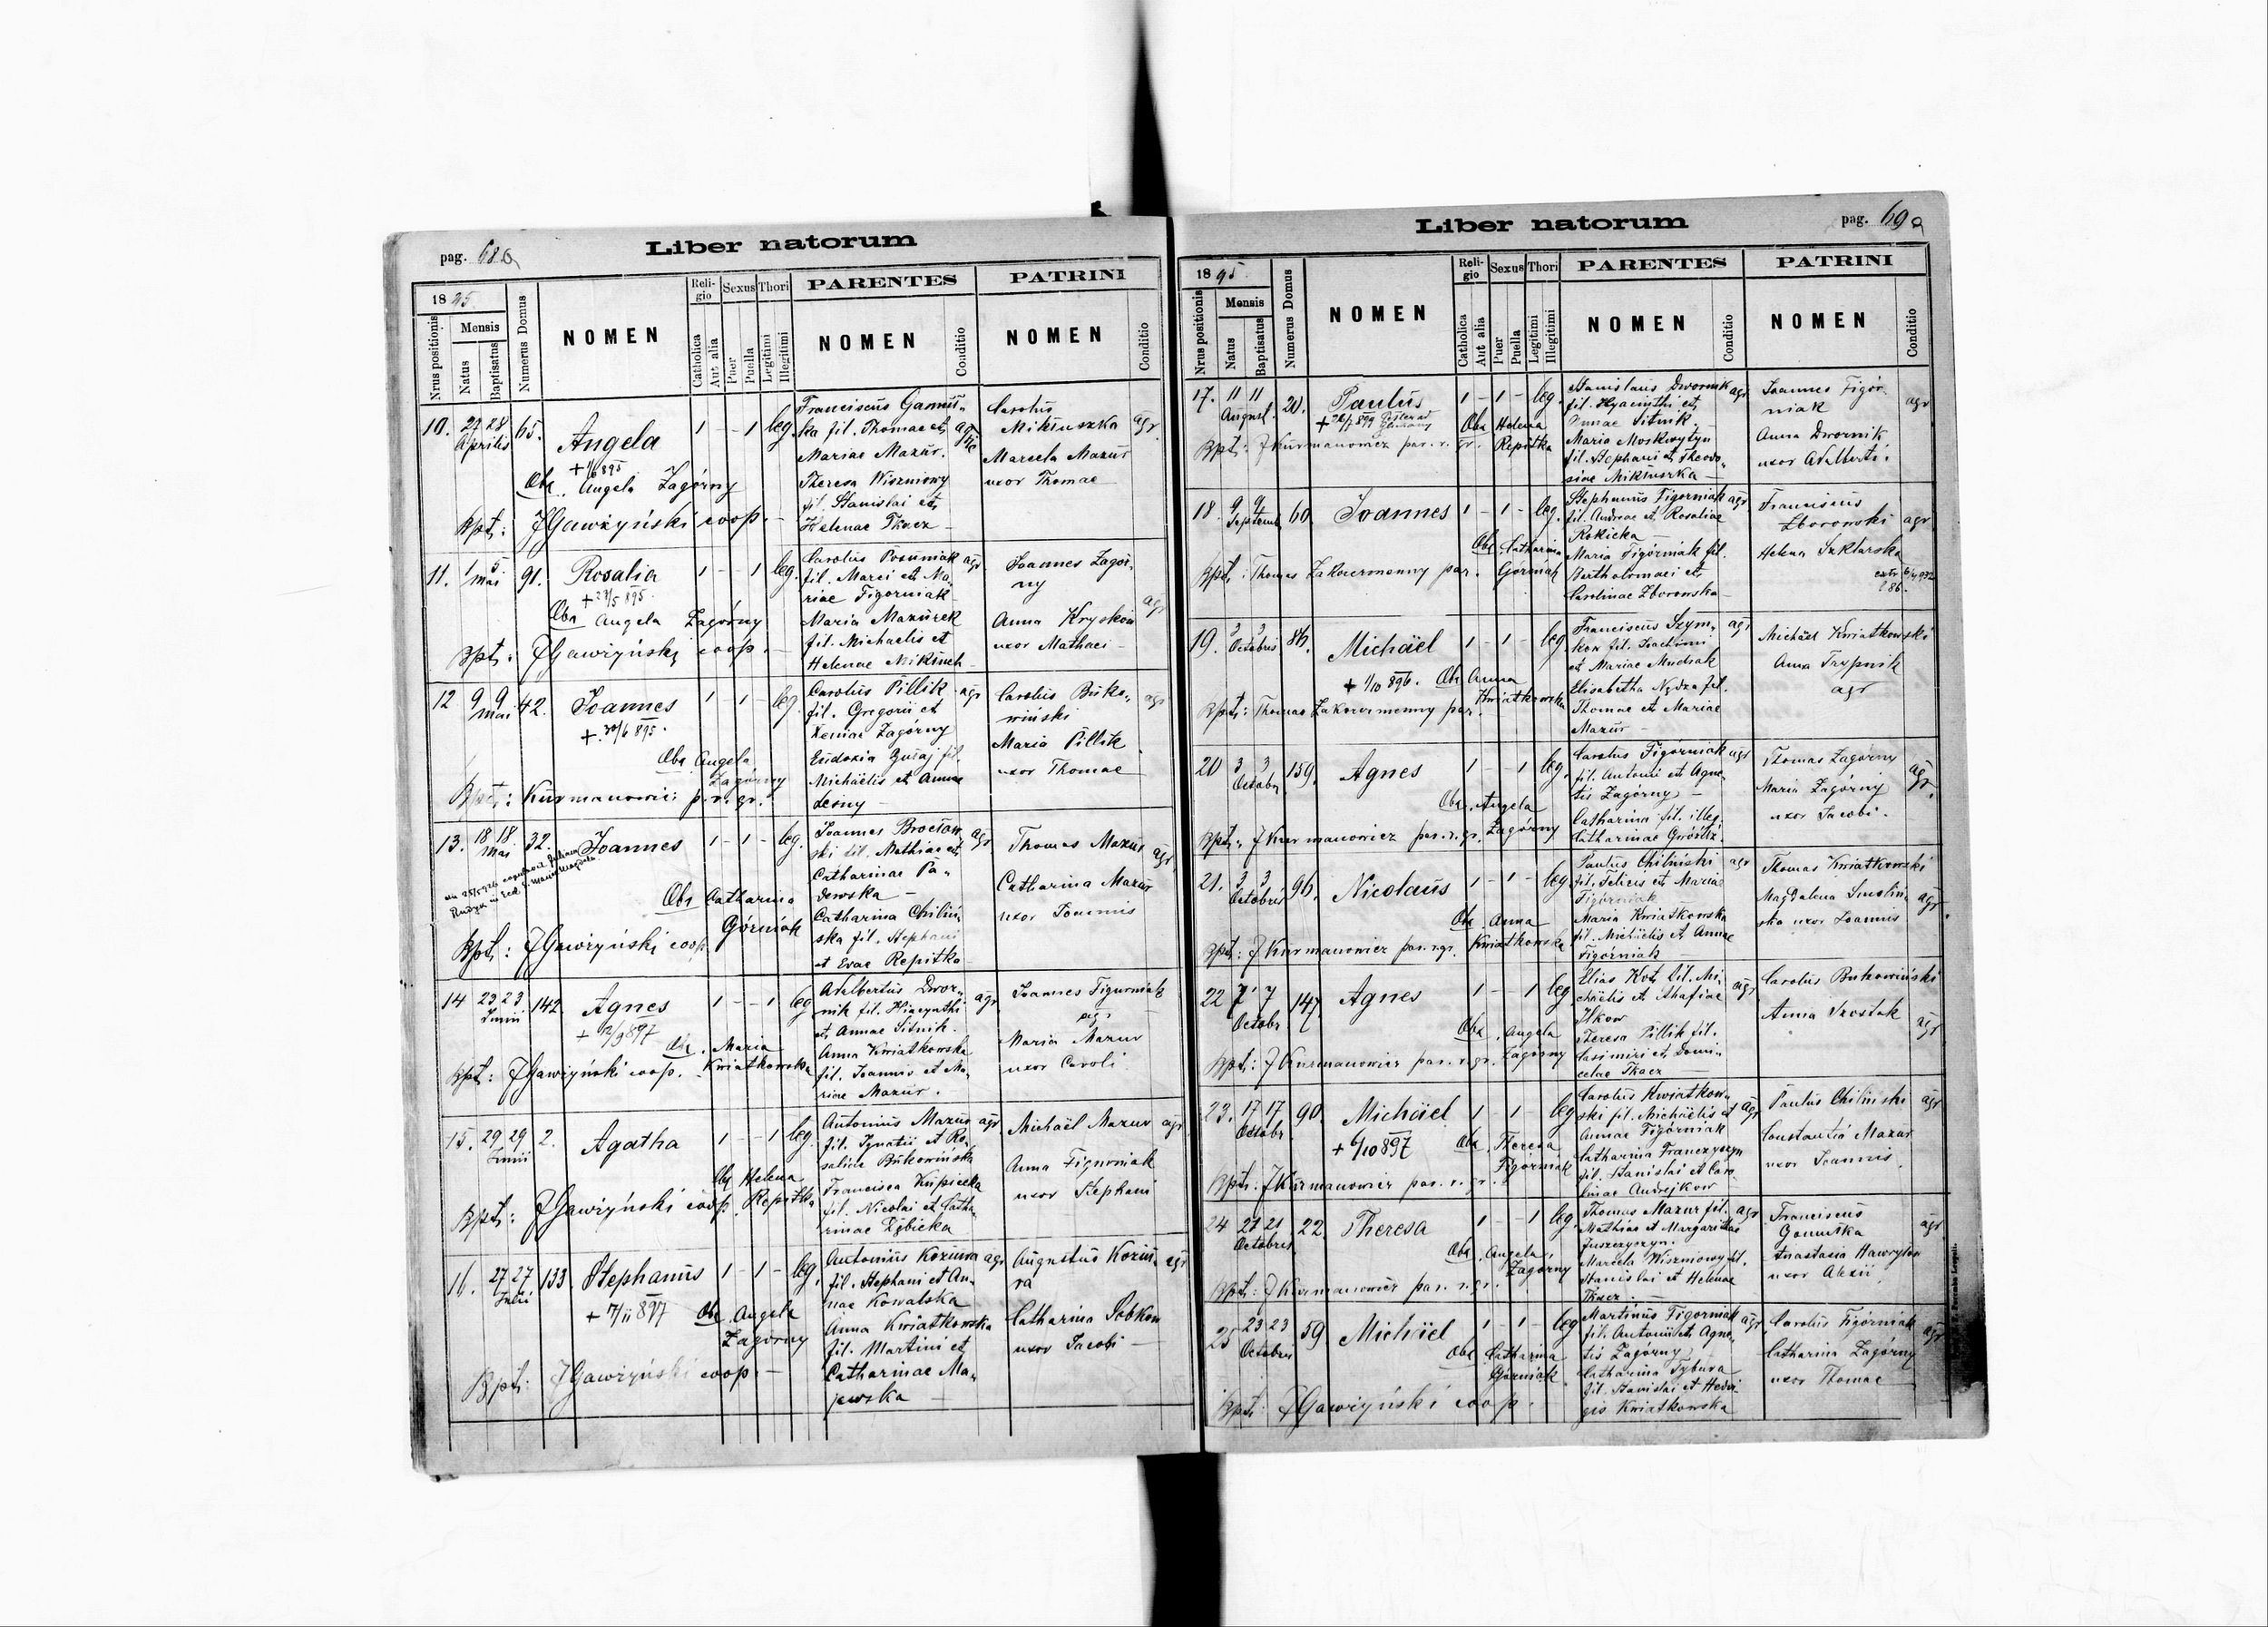 pag. 68a
Liber natorum
1895.
Nrus positionis
Mensis
Natus
Baptisatus
Numerus Domus
NOMEN
Religio
Catholica
Aut alia
Sexus
Puer
Puella
Thori
Legitimi
Illegitimi
PARENTES
NOMEN
Conditio
PATRINI
NOMEN
Conditio
10. 27 28 Aprilis 65. Angela 1 - - 1 leg.
+ 1/6 895
Obs. Angela Zagórny
Bpt: J Gawżyński coop. -
Franciscus
fil. Thomae et
Mariae Mazur.
Theresa Wiszniowy
fil. Stanislai et
Helenae Tkacz -
Carolus
Mikiuszka agr.
Marcela Mazur
uxor Thomae
11. 1 5 Mai 91. Rosalia 1 - - 1 leg.
+ 27/5 895.
Obs Angela Zagórny
Bpt: J Gawżyński coop. -
Carolus Posuniak agr
fil. Marci et Ma-
riae Figorniak
Maria Mazurek
fil. Michaelis et
Helenae
Joannes Zagór-
ny
Anna Kryskow agr
uxor Mathaei -
12 9 9 Mai 42. Joannes 1 - 1 - leg.
+ 30/6 895.
Obs Angela
Zagórny
Bpt: Kurmanowicz p. r. gr.
Carolus Pillik agr
fil. Gregorii et
Xeniae Zagórny
Eudoxia
Michaëlis et Annae
Lesny -
Carolus Buko- agr
wiński
Maria Pillik
uxor Thomae
13. 18 18 Mai 32. Joannes 1 - 1 - leg.
Obs Catharina
Górniak
Bpt: J Gawżyński coop.
Joannes agr
ski fil. Mathiae et
Catharinae Pa-
dewska -
Catharina Chiliń-
ska fil. Stephani
et Evae Repitka
Thomas Mazur agr
Catharina Mazur
uxor Joannis
14 23 23 Junii 142 Agnes 1 - - 1 leg
+ 12/9 897
Obs. Maria
Kwiatkowska
Bpt: J Gawżyński coop.
Adalbertus Dwor- agr
nik fil. Hiacynthi
et Annae Sitnik.
Anna Kwiatkowska
fil. Joannis et Ma-
riae Mazur.
Joannes Figurniak
agr
Maria Mazur
uxor Caroli
15. 29 29 Junii 2. Agatha 1 - - 1 leg.
Obs Helena
Repitka
Bpt: J Gawżyński coop.
Antonius Mazur agr
fil. Ignatii et Ro-
saliae Bukowińska
Francisca Kupicka
fil. Nicolai et Catha-
rinae
Michaël Mazur agr
Anna Figurniak
uxor Stephani
16. 27 27 Julii 133 Stephanus 1 - 1 - leg.
+ 17/11 897
Obs. Angela
Zagórny
Bpt: J Gawżyński coop. -
Antonius Kozura agr
fil. Stephani et An-
nae Kowalska
Anna Kwiatkowska
fil. Martini et
Catharinae Ma-
jewska -
Augustus Kozu- agr
ra
Catharina Sobkow
uxor Jacobi -
Liber natorum
pag. 69a
1895
Nrus positionis
Mensis
Natus
Baptisatus
Numerus Domus
NOMEN
Religio
Catholica
Aut alia
Sexus
Puer
Puella
Thori
Legitimi
Illegitimi
PARENTES
NOMEN
Conditio
PATRINI
NOMEN
Conditio
17. 11 11 August. 20. Paulus 1 - 1 - leg.
Obs Helena
Repitka
Bpt: J Kurmanowicz par. r. gr.
Stanislaus Dwornik agr
fil. Hyacinthi et
Annae Sitnik.
Maria Moskwytyn
fil. Stephani et Theodo-
siae Mikiuszka -
Joannes Figór- agr
niak
Anna Dwornik
uxor Adalberti.
18. 9 9 Septemb 60 Joannes 1 - 1 - leg.
Obs. Catharina
Górniak
Bpt: Thomas Zakovermenny par.
Stephanus Figorniak agr
fil. Andreae et Rosaliae
Rokicka -
Maria Figórniak fil.
Bartholomaei et
Carolinae Zborowska -
Franciscus
Zborowski agr
Helena Szklarska
19. 3 3 Octobris 86. Michäel 1 - 1 - leg
+ 1/10 896. Obs Anna
Kwiatkowska
Bpt: Thomas Zakovermenny par.
Franciscus Szym- agr
kow fil. Joachimi
et Mariae Mudrak
Elisabetha Nędza fil.
Thomae et Mariae
Mazur -
Michäel Kwiatkowski
Anna Trypnik
agr
20 3 3 Octobr 159. Agnes 1 - - 1 leg.
Obs. Angela
Zagórny
Bpt: J Kurmanowicz par. r. gr.
Carolus Figórniak agr
fil. Antonii et Agne-
tis Zagórny -
Catharina fil. illeg.
Catharinae
Thomas Zagórny
agr.
Maria Zagórny
uxor Jacobi.
21. 3 3 Octobris 96. Nicolaus 1 - 1 - leg
Obs. Anna
Kwiatkowska
Bpt: J Kurmanowicz par. r. gr.
Paulus Chiliński agr
fil. Felicis et Maria
Figórniak
Maria Kwiatkowska
fil. Michäelis et Annae
Figórniak -
Thomas Kwiatkowski
Magdalena Smoliń- agr.
ska uxor Joannis
22 7 7 Octobr 147 Agnes 1 - - 1 leg
Obs. Angela
Zagórny
Bpt: J Kurmanowicz par. r. gr.
Elias Kot fil. Mi- agr
chäelis et Ahafiae
Ilkow
Theresa Pillik fil.
Casimiri et Domi-
celae Tkacz -
Carolus Bukowiński
Anna Szostak agr
23. 17 17 Octobr. 90. Michäel 1 - 1 - leg
+ 6/10 897 Obs. Theresa
Figórniak
Bpt: J Kurmanowicz par. r. gr.
Carolus Kwiatkow- agr
ski fil. Michäelis et
Annae Figórniak
Catharina Franczyszyn
fil. Stanislai et Caro-
linae Andrejkow
Paulus Chiliński agr
Constantia Mazur
uxor Joannis.
24 21 21 Octobris 22 Theresa 1 - - 1 leg
Obs. Angela
Zagórny
Bpt: J Kurmanowicz par. r. gr.
Thomas Mazur fil. agr
Mathiae et Margarithae
Juszczyszyn.
Marcela Wiszniowy fil.
Stanislai et Helenae
Tkacz. -
Franciscus
agr
Anastasia Hawrylow
uxor Alexii.
25 23 23 Octobris 59 Michäel 1 - 1 - leg
Obs Catharina
Górniak
Bpt: J Gawżyński coop.
Martinus Figorniak agr
fil. Antonii et Agne-
tis Zagórny
Catharina Tybura
fil. Stanislai et Hedvi-
gis Kwiatkowska
Carolus Figórniak agr
Catharina Zagórny
uxor Thomae